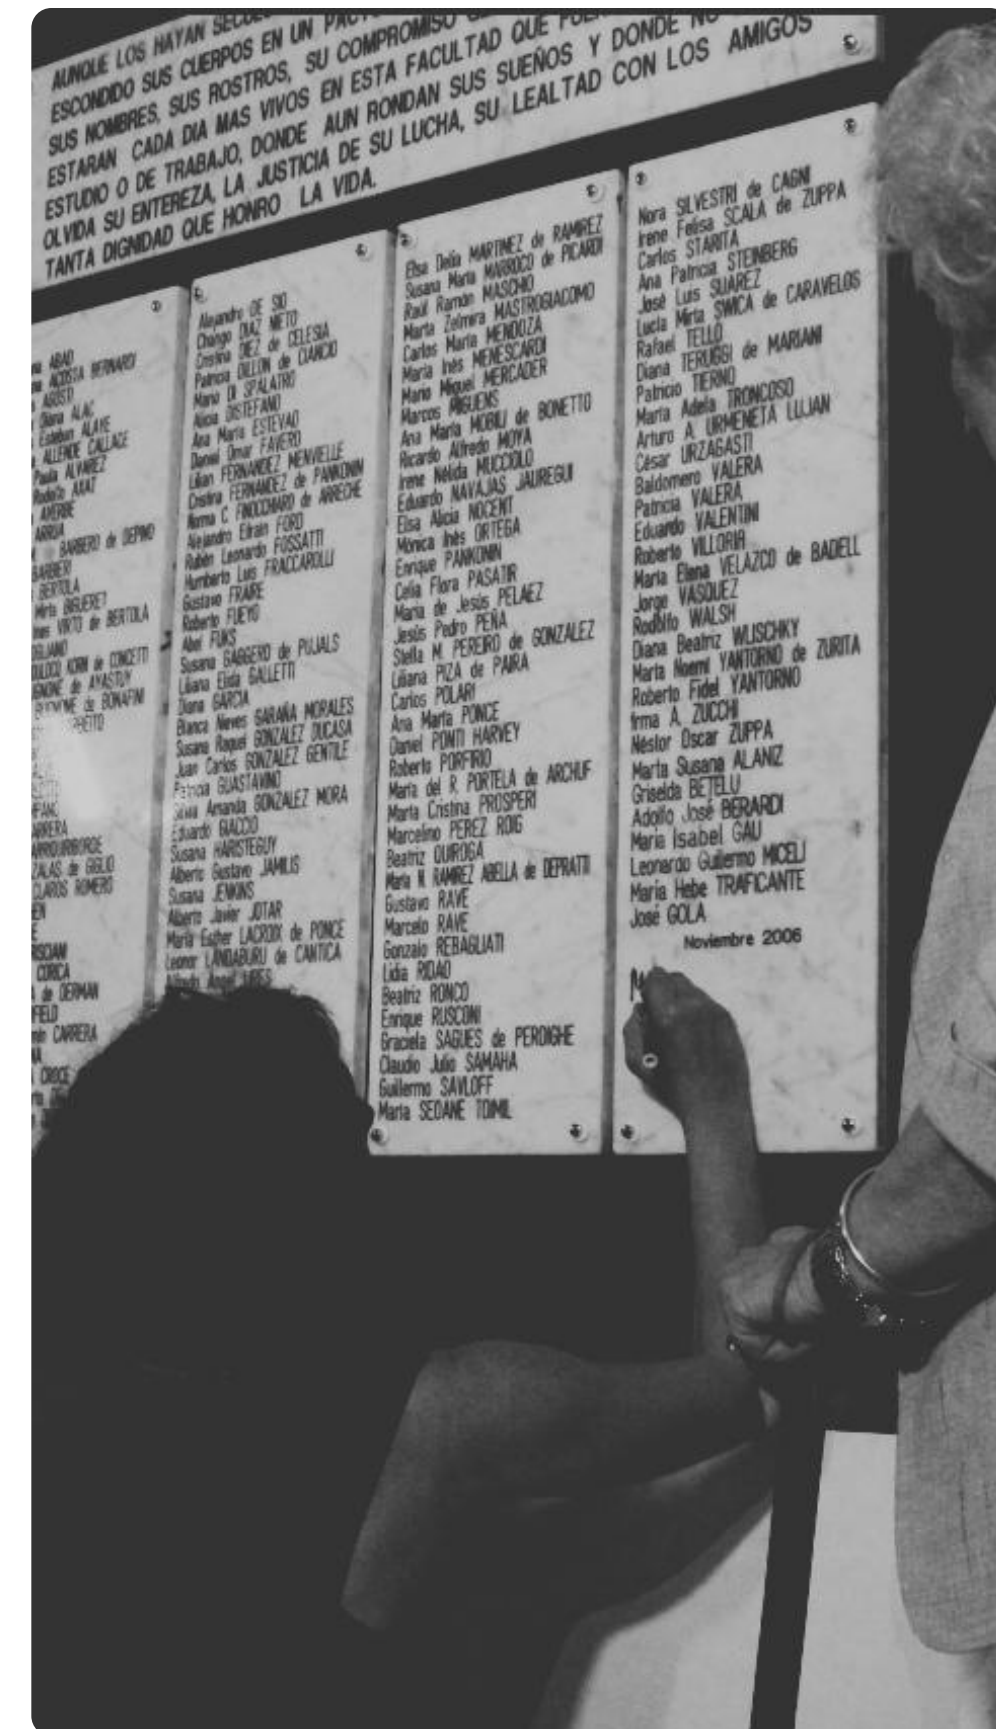 AUNQUE LOS HAYAN
ESCONDIDO SUS CUERPOS EN UN
SUS NOMBRES, SUS ROSTROS, SU COMPROMISO
ESTARAN CADA DIA MAS VIVOS EN ESTA FACULTAD QUE
ESTUDIO O DE TRABAJO, DONDE AUN RONDAN SUS SUEÑOS Y DONDE NO
OLVIDA SU ENTEREZA, LA JUSTICIA DE SU LUCHA, SU LEALTAD CON LOS AMIGOS
TANTA DIGNIDAD QUE HONRO LA VIDA.
ABAD
ACOSTA BERNARDI
AGOSTI
Diana ALAC
Esteban ALAYE
ALLENDE CALLACE
Paula ALVAREZ
Rodolfo AXAT
AYERBE
ARRUA
BARBERO de DEPINO
BARBIERI
BERTOLA
Mirta BIGUERET
VIRTO de BERTOLA
KORN de CONCETTI
de AYASTUY
de BONAFINI
CARRERA
de GIGLIO
CLAROS ROMERO
CORICA
de DERMAN
CARRERA
CROCE
Alejandro DE SIO
Chango DIAZ NIETO
Cristina DIEZ de CELESIA
Patricia DILLON de CIANCIO
Mario DI SPALATRO
Alicia DISTEFANO
Ana María ESTEVAO
Daniel Omar FAVERO
Lilian FERNANDEZ MENVIELLE
Cristina FERNANDEZ de PANKONIN
Norma C. FINOCCHIARO de ARRECHE
Alejandro Efraín FORD
Rubén Leonardo FOSSATTI
Humberto Luis FRACCAROLLI
Gustavo FRAIRE
Roberto FUEYO
Abel FUKS
Susana GAGGERO de PUJALS
Liliana Elida GALLETTI
Diana GARCIA
Blanca Nieves GARAÑA MORALES
Susana Raquel GONZALEZ DUCASA
Juan Carlos GONZALEZ GENTILE
Patricia GUASTAVINO
Silvia Amanda GONZALEZ MORA
Eduardo GIACCIO
Susana HARISTEGUY
Alberto Gustavo JAMILIS
Susana JENKINS
Alberto Javier JOTAR
María Esther LACROIX de PONCE
Leonor LANDABURU de CANTICA
Alfredo Angel
Elsa Delia MARTINEZ de RAMIREZ
Susana María MARROCO de PICARDI
Raúl Ramón MASCHIO
Marta Zelmira MASTROGIACOMO
Carlos María MENDOZA
María Inés MENESCARDI
Mario Miguel MERCADER
Marcos MIGUENS
Ana María MOBILI de BONETTO
Ricardo Alfredo MOYA
Irene Nélida MUCCIOLO
Eduardo NAVAJAS JAUREGUI
Elsa Alicia NOCENT
Mónica Inés ORTEGA
Enrique PANKONIN
Celia Flora PASATIR
María de Jesús PELAEZ
Jesús Pedro PEÑA
Stella M. PEREIRO de GONZALEZ
Liliana PIZA de PAIRA
Carlos POLARI
Ana María PONCE
Daniel PONTI HARVEY
Roberto PORFIRIO
María del R. PORTELA de ARCHUF
María Cristina PROSPERI
Marcelino PEREZ ROIG
Beatriz QUIROGA
María N. RAMIREZ ABELLA de DEPRATTI
Gustavo RAVE
Marcelo RAVE
Gonzalo REBAGLIATI
Lidia RIDAO
Beatriz RONCO
Enrique RUSCONI
Graciela SAGUES de PERDIGHE
Claudio Julio SAMAHA
Guillermo SAVLOFF
María SEOANE TOIMIL
Nora SILVESTRI de CAGNI
Irene Felisa SCALA de ZUPPA
Carlos STARITA
Ana Patricia STEINBERG
José Luis SUAREZ
Lucía Mirta SWICA de CARAVELOS
Rafael TELLO
Diana TERUGGI de MARIANI
Patricio TIERNO
María Adela TRONCOSO
Arturo A. URMENETA LUJAN
César URZAGASTI
Baldomero VALERA
Patricia VALERA
Eduardo VALENTINI
Roberto VILLORIA
María Elena VELAZCO de BADELL
Jorge VASQUEZ
Rodolfo WALSH
Diana Beatriz WLISCHKY
Marta Noemí YANTORNO de ZURITA
Roberto Fidel YANTORNO
Irma A. ZUCCHI
Néstor Oscar ZUPPA
Marta Susana ALANIZ
Griselda BETELU
Adolfo José BERARDI
María Isabel GAU
Leonardo Guillermo MICELI
María Hebe TRAFICANTE
José GOLA
Noviembre 2006